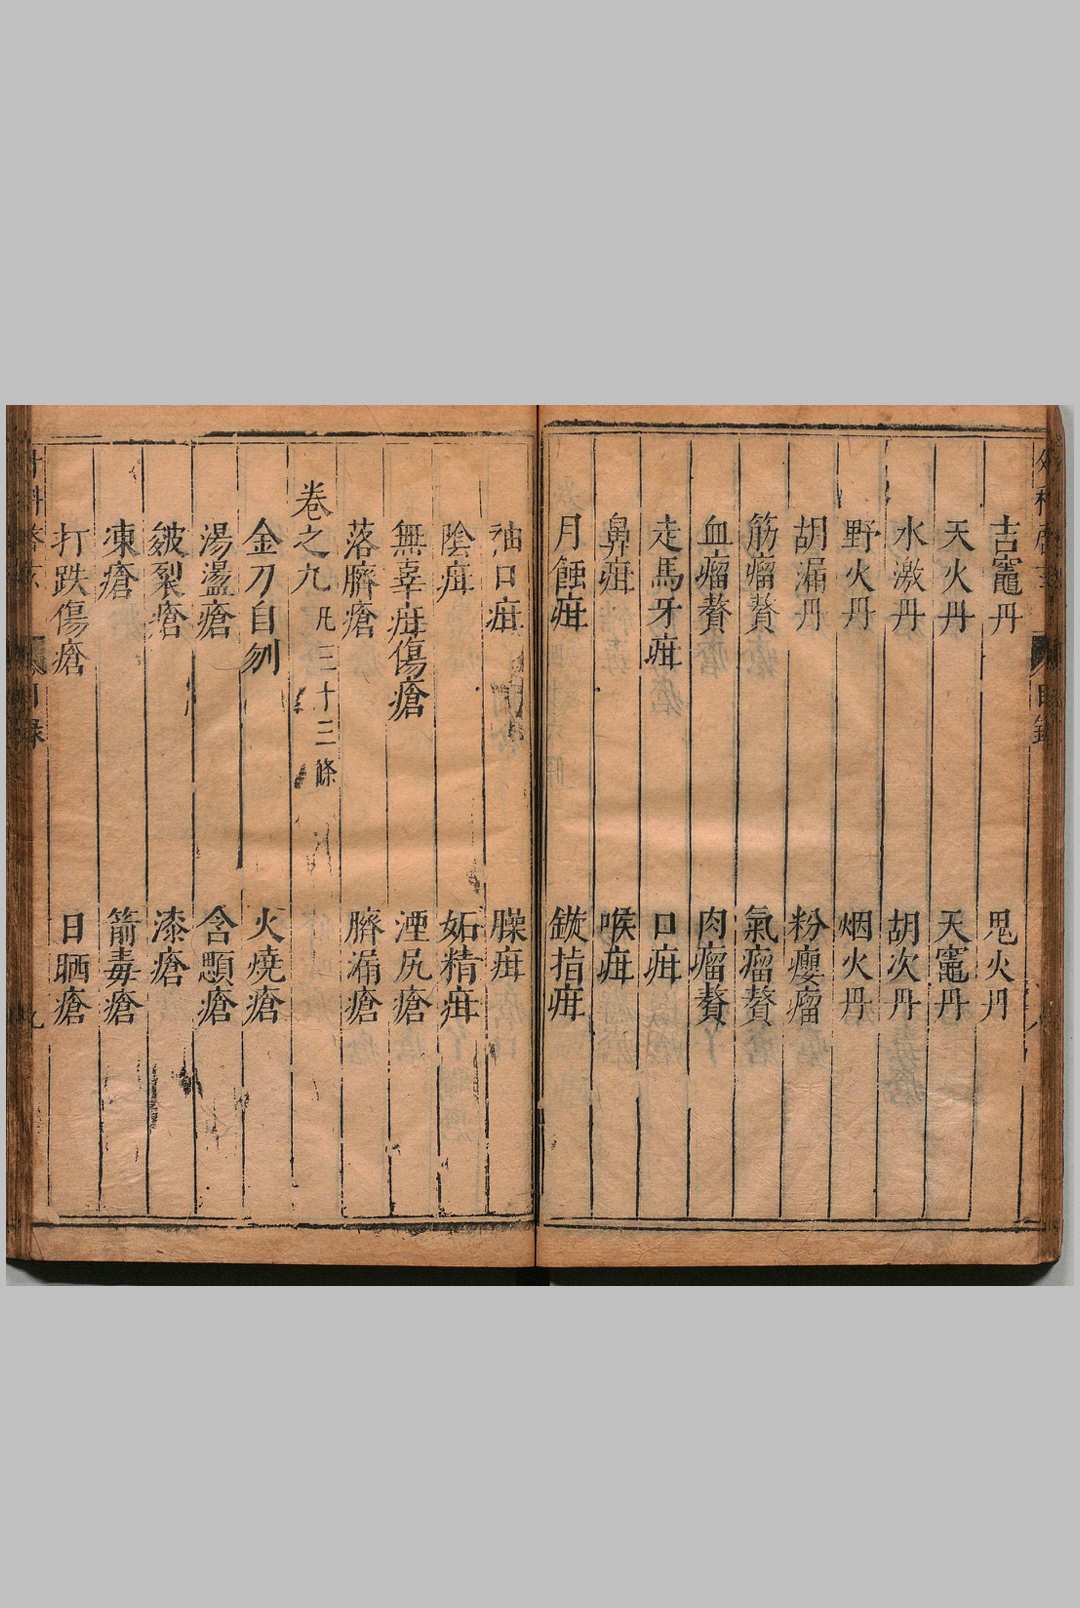 吉竈丹 鬼火丹
天火丹 天竈丹
水激丹 胡次丹
野火丹 烟火丹
胡漏丹 粉癭瘤
筋瘤贅 氣瘤贅
血瘤贅 肉瘤贅
走馬牙疳 口疳
鼻疳 喉疳
月蝕疳 鏇指疳
秞口疳 臊疳
陰疳 妬精疳
無辜疳傷瘡 湮尻瘡
落臍瘡 臍漏瘡
卷之九 凡三十三條
金刀自刎 火燒瘡
湯盪瘡 含顋瘡
皴裂瘡 漆瘡
凍瘡 箭毒瘡
打跌傷瘡 日晒瘡
目錄